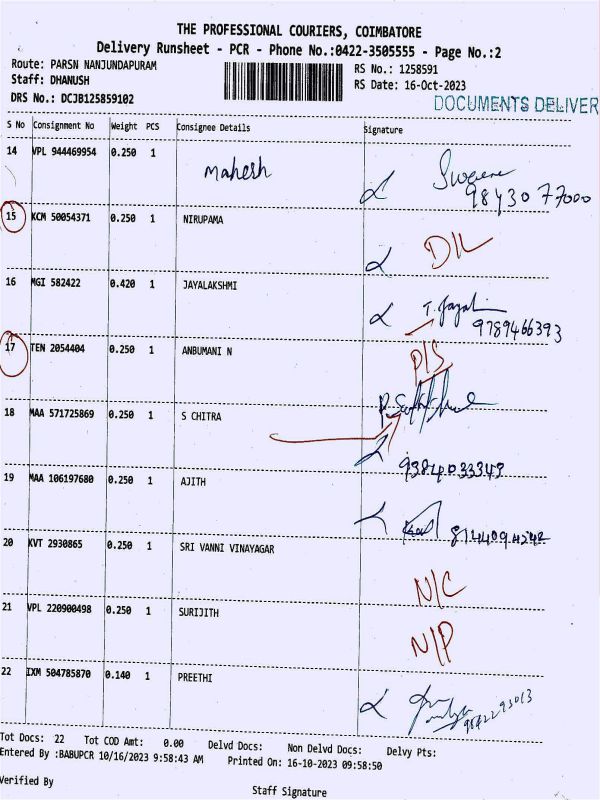 THE PROFESSIONAL COURIERS, COIMBATORE
Delivery Runsheet - PCR - Phone No.:0422-3505555 - Page No.:2
Route: PARSN NANJUNDAPURAM
RS No.: 1258591
Staff: DHANUSH
RS Date: 16-Oct-2023
DRS No.: DCJB125859102
DOCUMENTS DELIVER
S No Consignment No Weight PCS Consignee Details Signature
14 VPL 944469954 0.250 1 Mahesh
98430 77000
15 KCM 50054371 0.250 1 NIRUPAMA
D/L
16 MGI 582422 0.420 1 JAYALAKSHMI
9789466393
17 TEN 2054404 0.250 1 ANBUMANI N
P/S
18 MAA 571725869 0.250 1 S CHITRA
9384033349
19 MAA 106197680 0.250 1 AJITH
8144094242
20 KVT 2930865 0.250 1 SRI VANNI VINAYAGAR
N/C
21 VPL 220900498 0.250 1 SURIJITH
N/P
22 IXM 504785870 0.140 1 PREETHI
Tot Docs: 22 Tot COD Amt: 0.00 Delvd Docs: Non Delvd Docs: Delvy Pts:
Entered By :BABUPCR 10/16/2023 9:58:43 AM Printed On: 16-10-2023 09:58:50
Verified By
Staff Signature